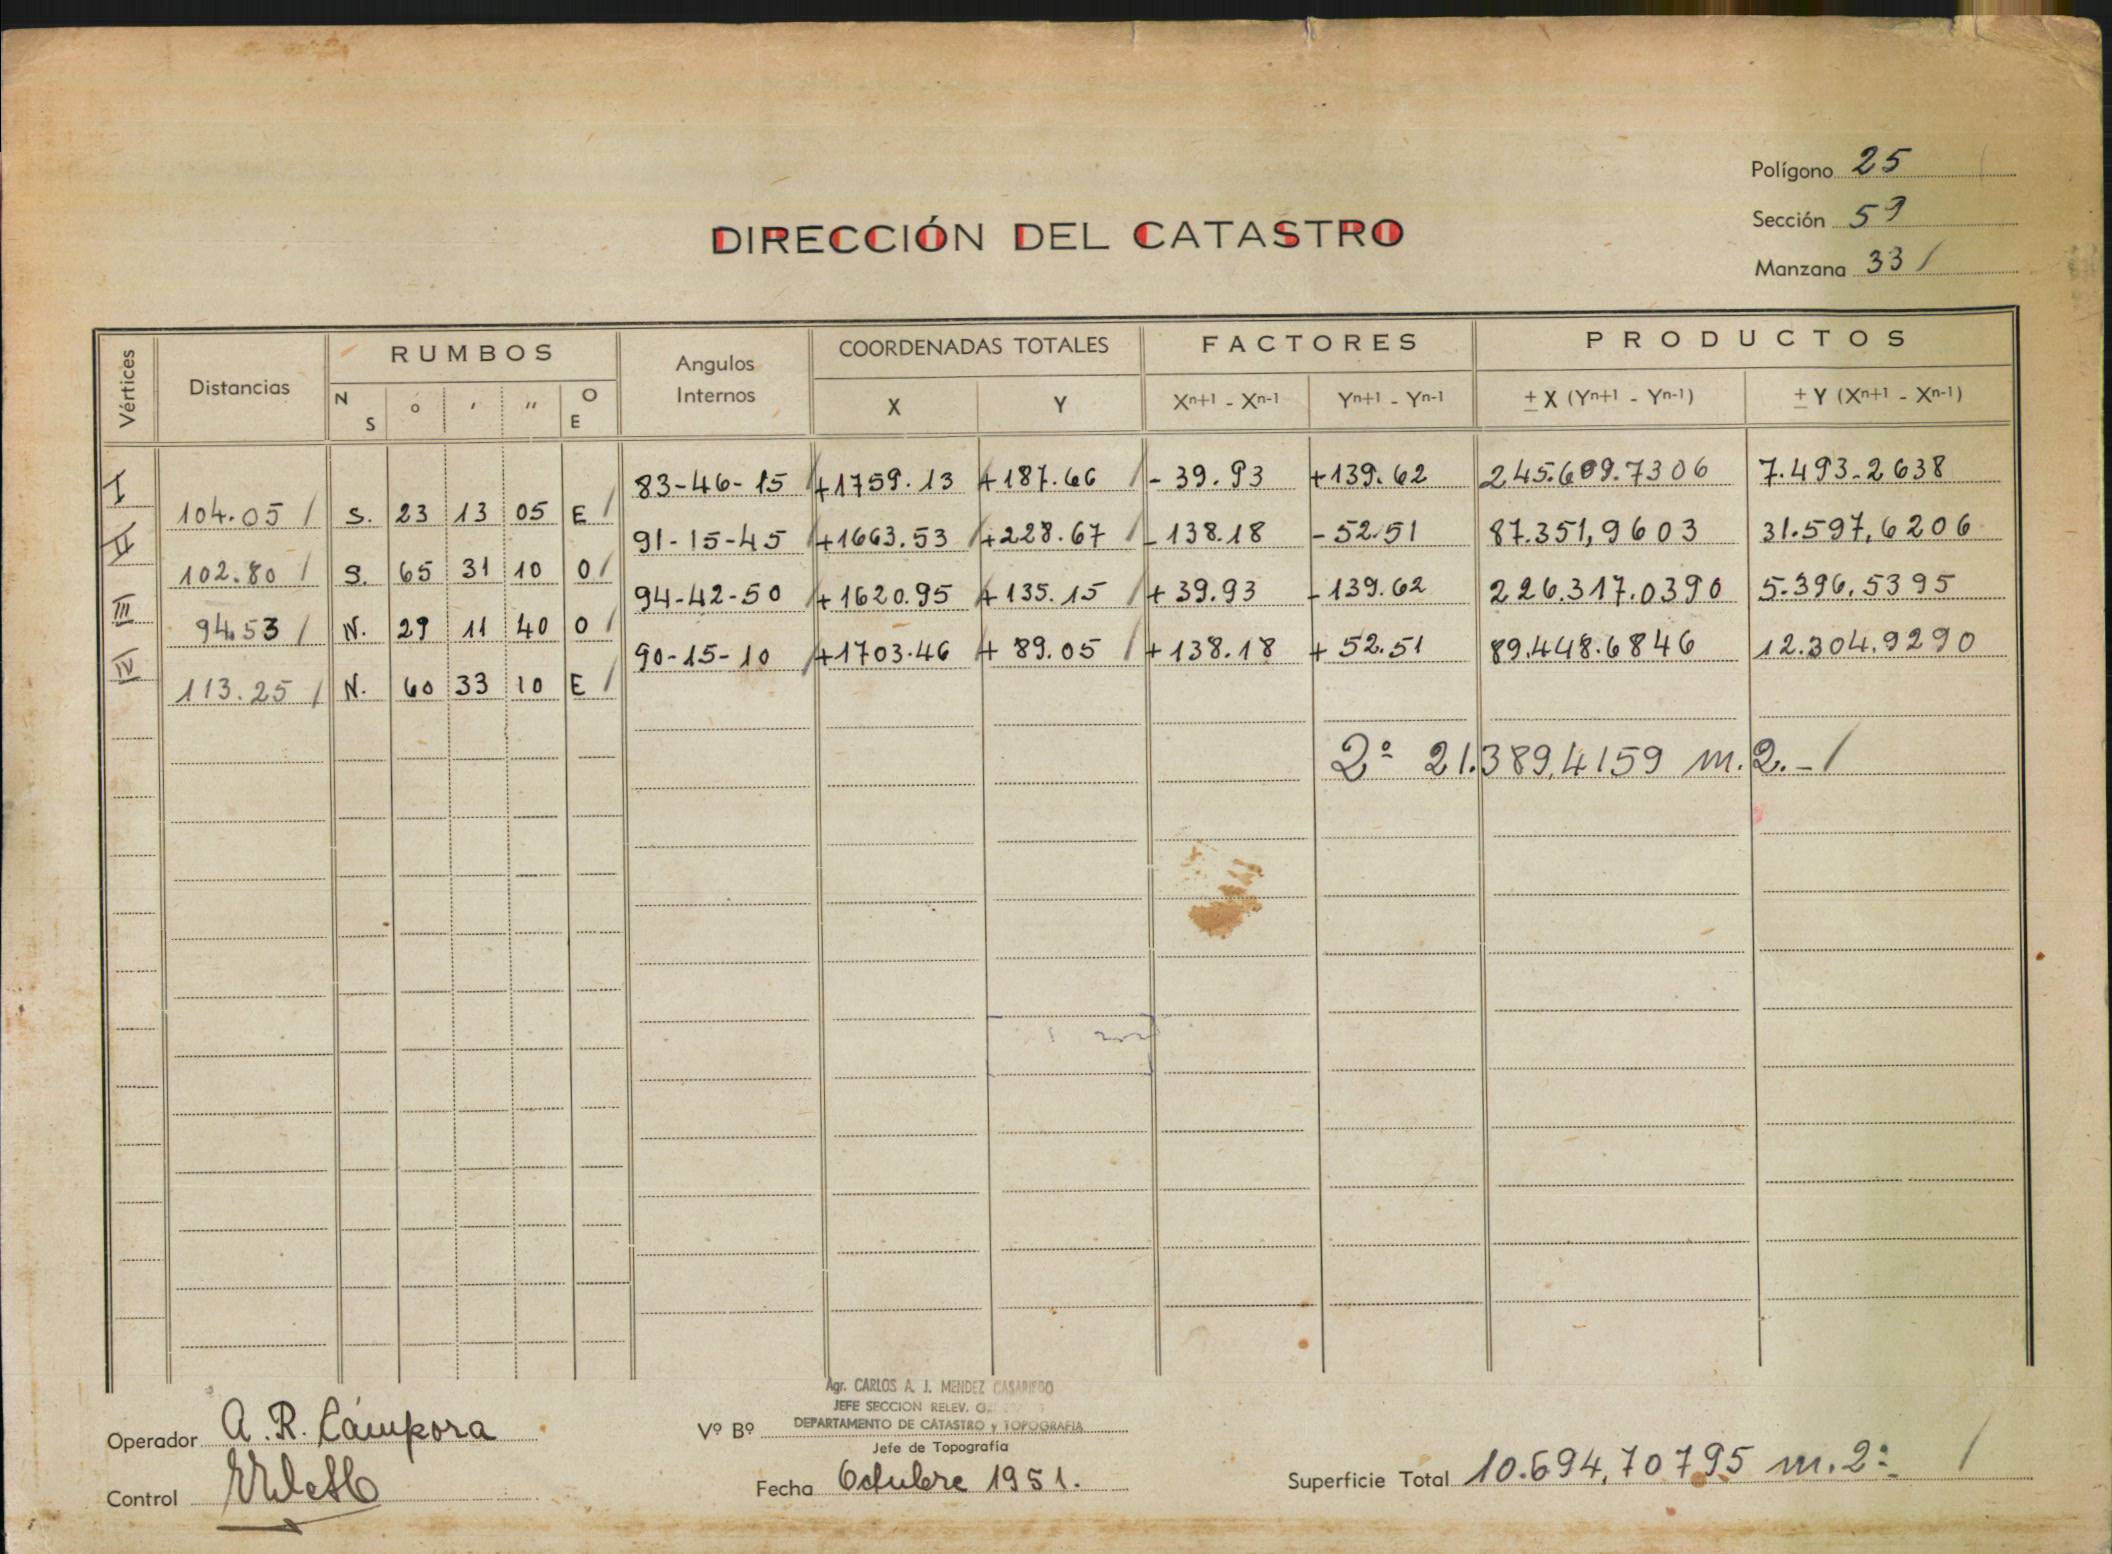 Polígono 25
Sección 59
Manzana 33 /
DIRECCIÓN DEL CATASTRO
Vértices Distancias RUMBOS Angulos Internos COORDENADAS TOTALES FACTORES PRODUCTOS
N S o ′ ″ O E X Y Xn+1 - Xn-1 Yn+1 - Yn-1 ± X (Yn+1 - Yn-1) ± Y (Xn+1 - Xn-1)
I 83-46-15 /+1759.13 /+187.66 /- 39.93 +139.62 245.609.7306 7.493.2638
104.05 / S. 23 13 05 E /
II 91-15-45 /+1663.53 /+228.67 /- 138.18 - 52.51 87.351,9603 31.597,6206
102.80 / S. 65 31 10 O /
III 94-42-50 /+1620.95 /+135.15 /+ 39.93 - 139.62 226.317.0390 5.396,5395
94.53 / N. 29 11 40 O /
IV 90-15-10 /+1703.46 /+ 89.05 /+ 138.18 + 52.51 89.448.6846 12.304.9290
113.25 / N. 60 33 10 E /
2º 21.389,4159 m.2.- /
Agr. CARLOS A. J. MENDEZ CASARIEGO
JEFE SECCION RELEV.
DEPARTAMENTO DE CATASTRO y TOPOGRAFIA
Operador A. R. Cámpora
Vº Bº
Jefe de Topografía
Control
Fecha Octubre 1951.
Superficie Total 10.694,70795 m.2: /